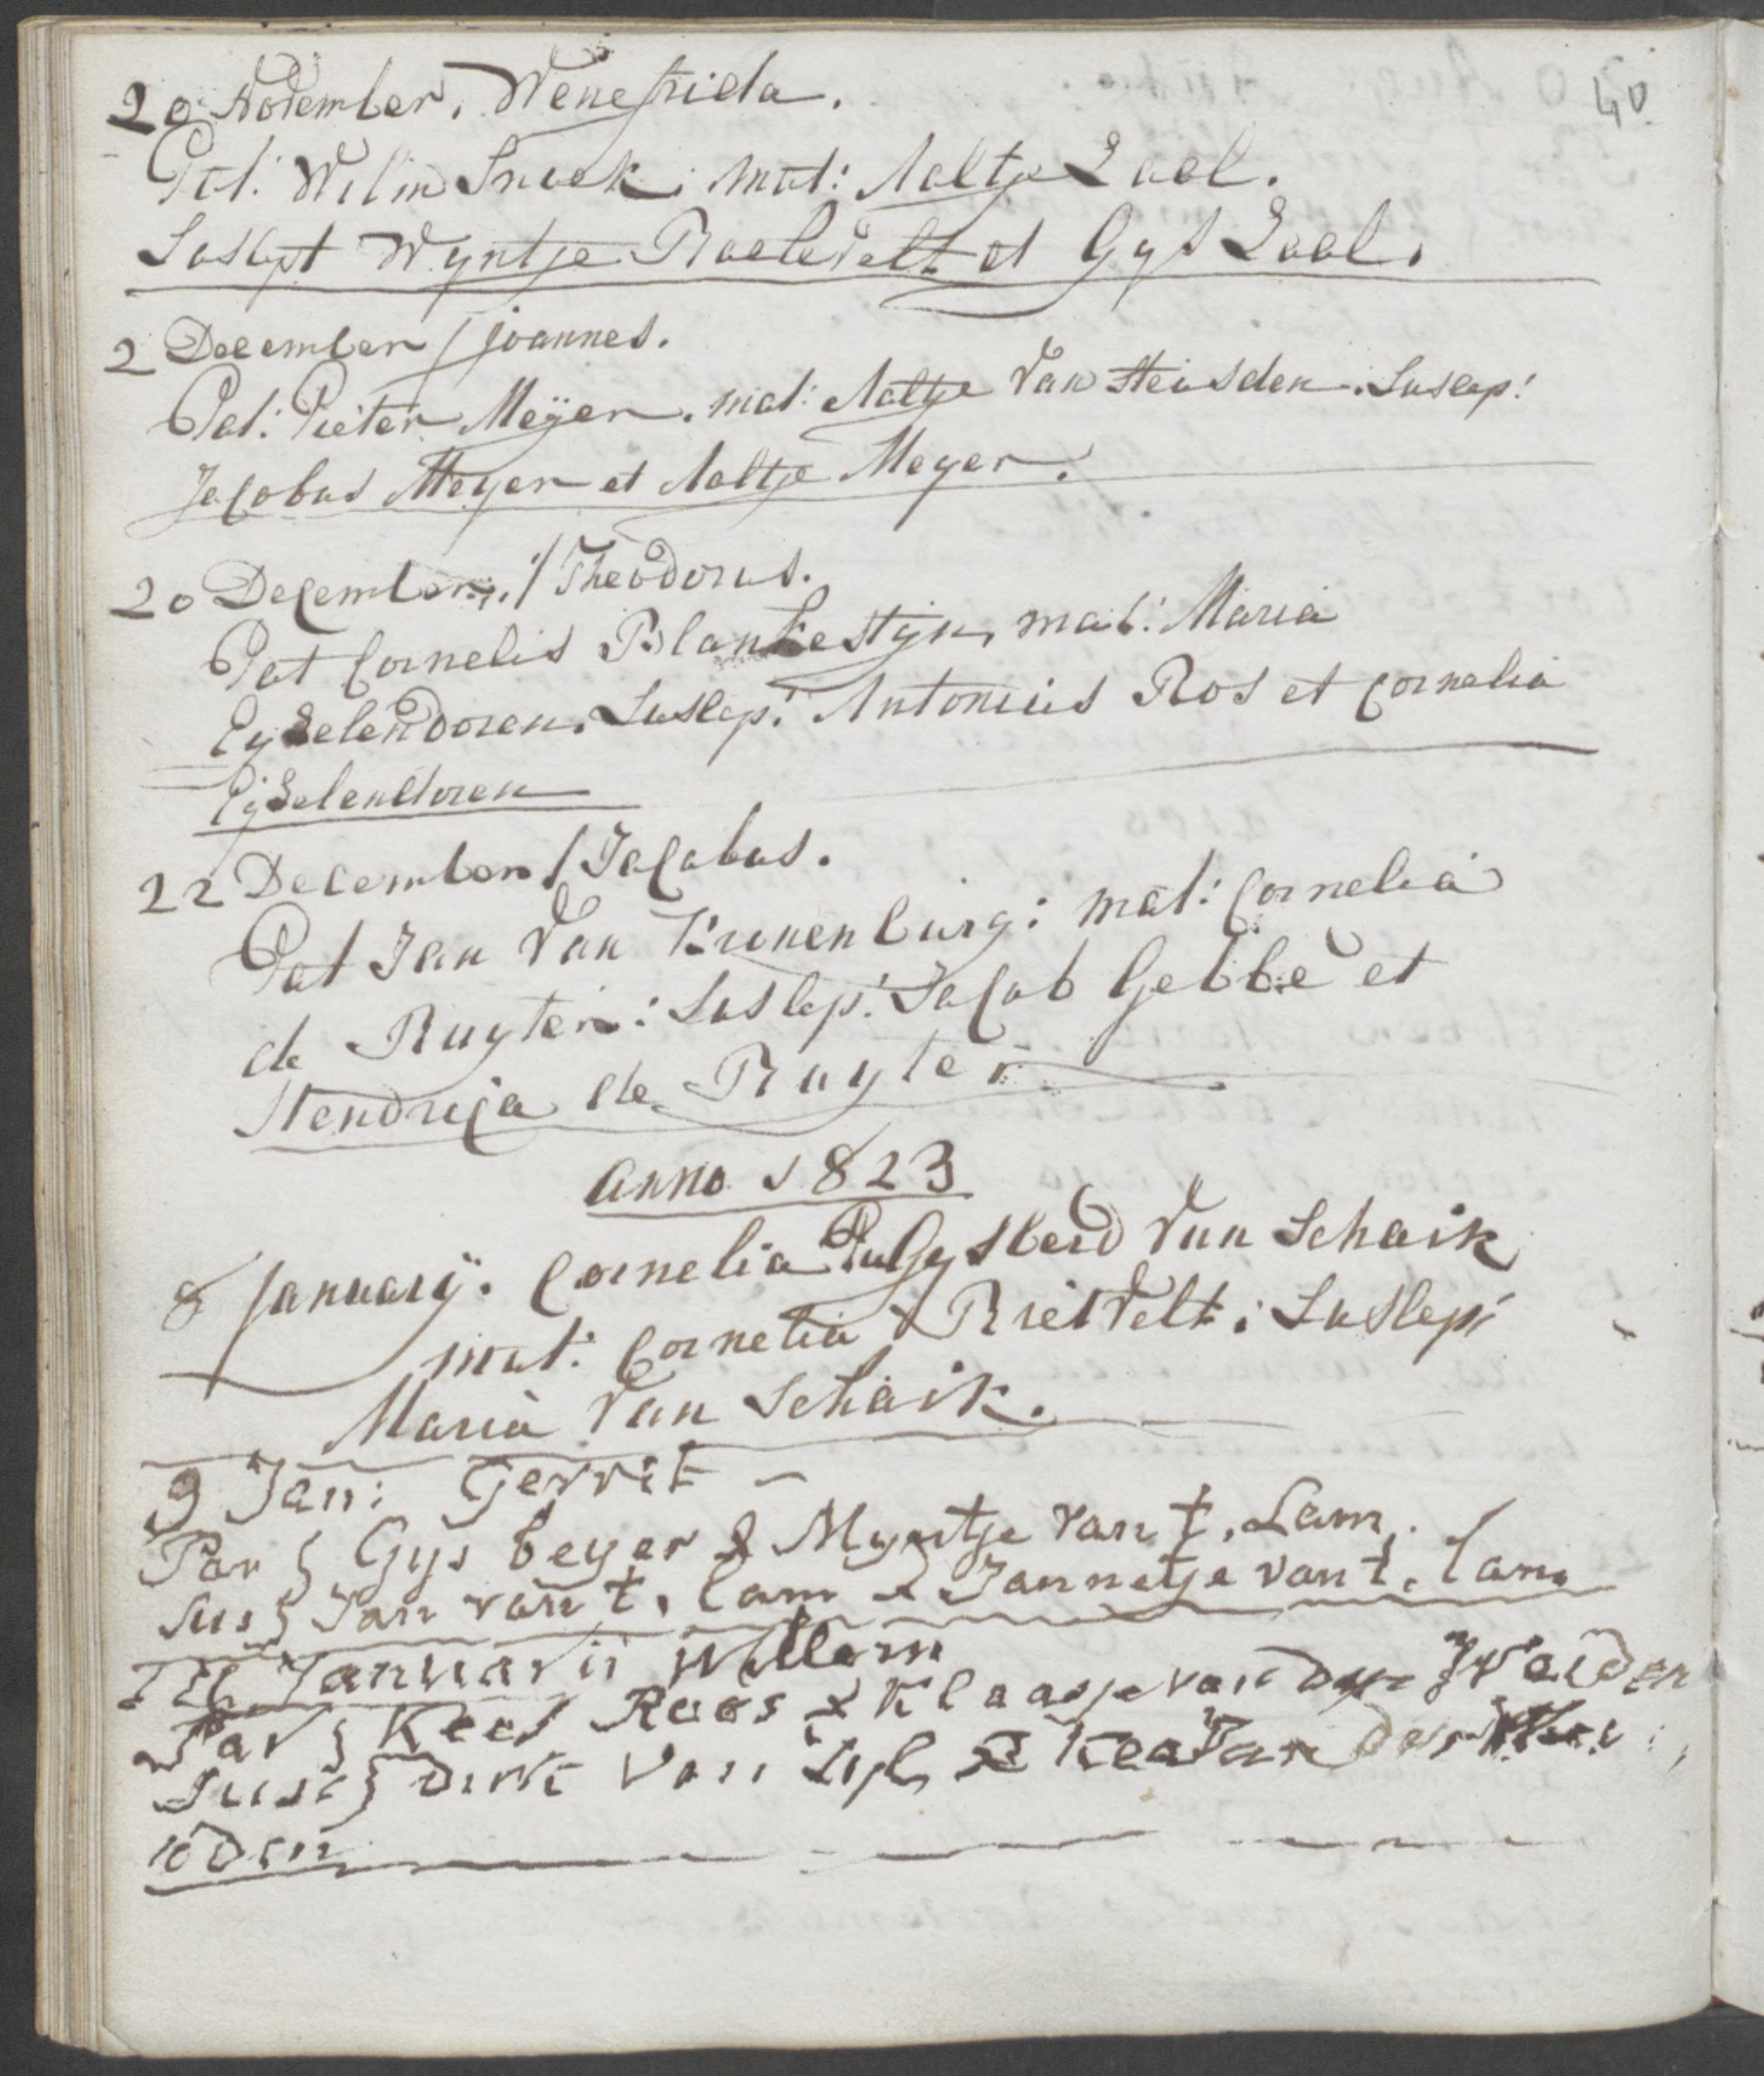 40
20 November. Wenefrida.
Pat: Wilm Snoek: mat: Aaltje Zaal.
Suscept Wyntje Roelevelt et Gys Zaal.
2 December / joannes.
Pat: Pieter Meÿer. mat: Aaltje Van Heusden. Suscep:
Jacobus Meyer et Aaltje Meyer.
20 December. / Theodorus.
Pat Cornelis Blankestijn, mat: Maria
Eyselendoren. Suscep: Antonius Ros et Cornelia
Eyselendoren
22 December / Jacobus.
Pat Jan Van Krunenburg: mat: Cornelia
de Ruyter: Suscep: Jacob Gebbe et
Hendrica de Ruyter
anno 1823
8 January. Cornelia Pat Gysberd Van Schaik
mat: Cornelia Rietvelt: Suscep:
Maria Van Schaik.
9 Jan: Gerrit
Par } Gys beyer & Myntje van t, Lam.
Sus } Jan van t, lam & Jannetje van t, lam
Januarii Willem
Par } Kees Roos & Klaasje van der
Susc } Dirk Van &